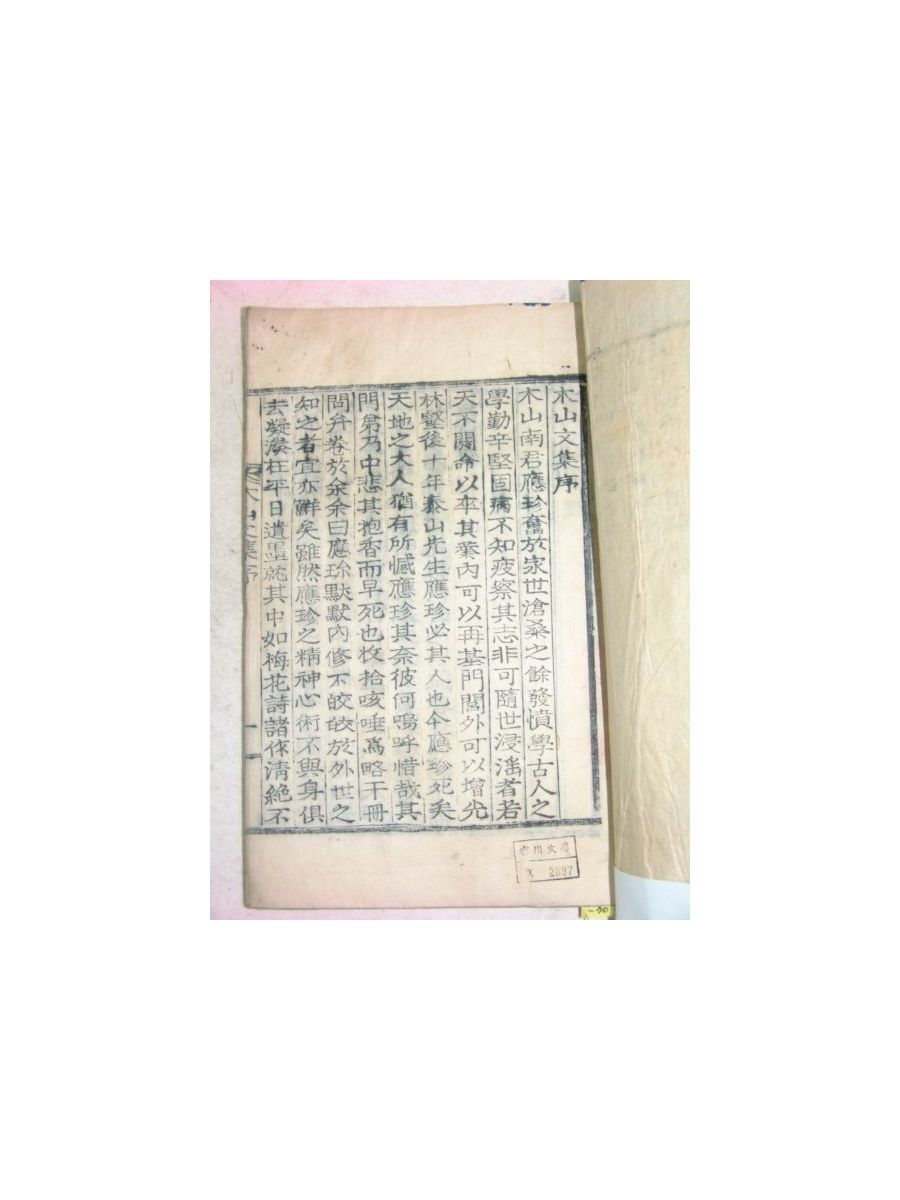 木山文集序
木山南君應珍奮於家世滄桑之餘發憤學古人之
學勤辛堅固病不知疲察其志非可隨世浸滛者若
天不閼命以卒其業內可以再基門閭外可以增光
林壑後十年泰山先生應珍必其人也今應珍死矣
天地之大人猶有所憾應珍其奈彼何嗚呼惜哉其
門弟乃中悲其抱香而早死也收拾咳唾爲略干冊
問弁卷於余余曰應珍默默內修不皎皎於外世之
知之者宜亦鮮矣雖然應珍之精神心術不與身俱
去凝湊在平日遺墨就其中如梅花詩諸作淸絶不
木山文集序
一
2897
-70